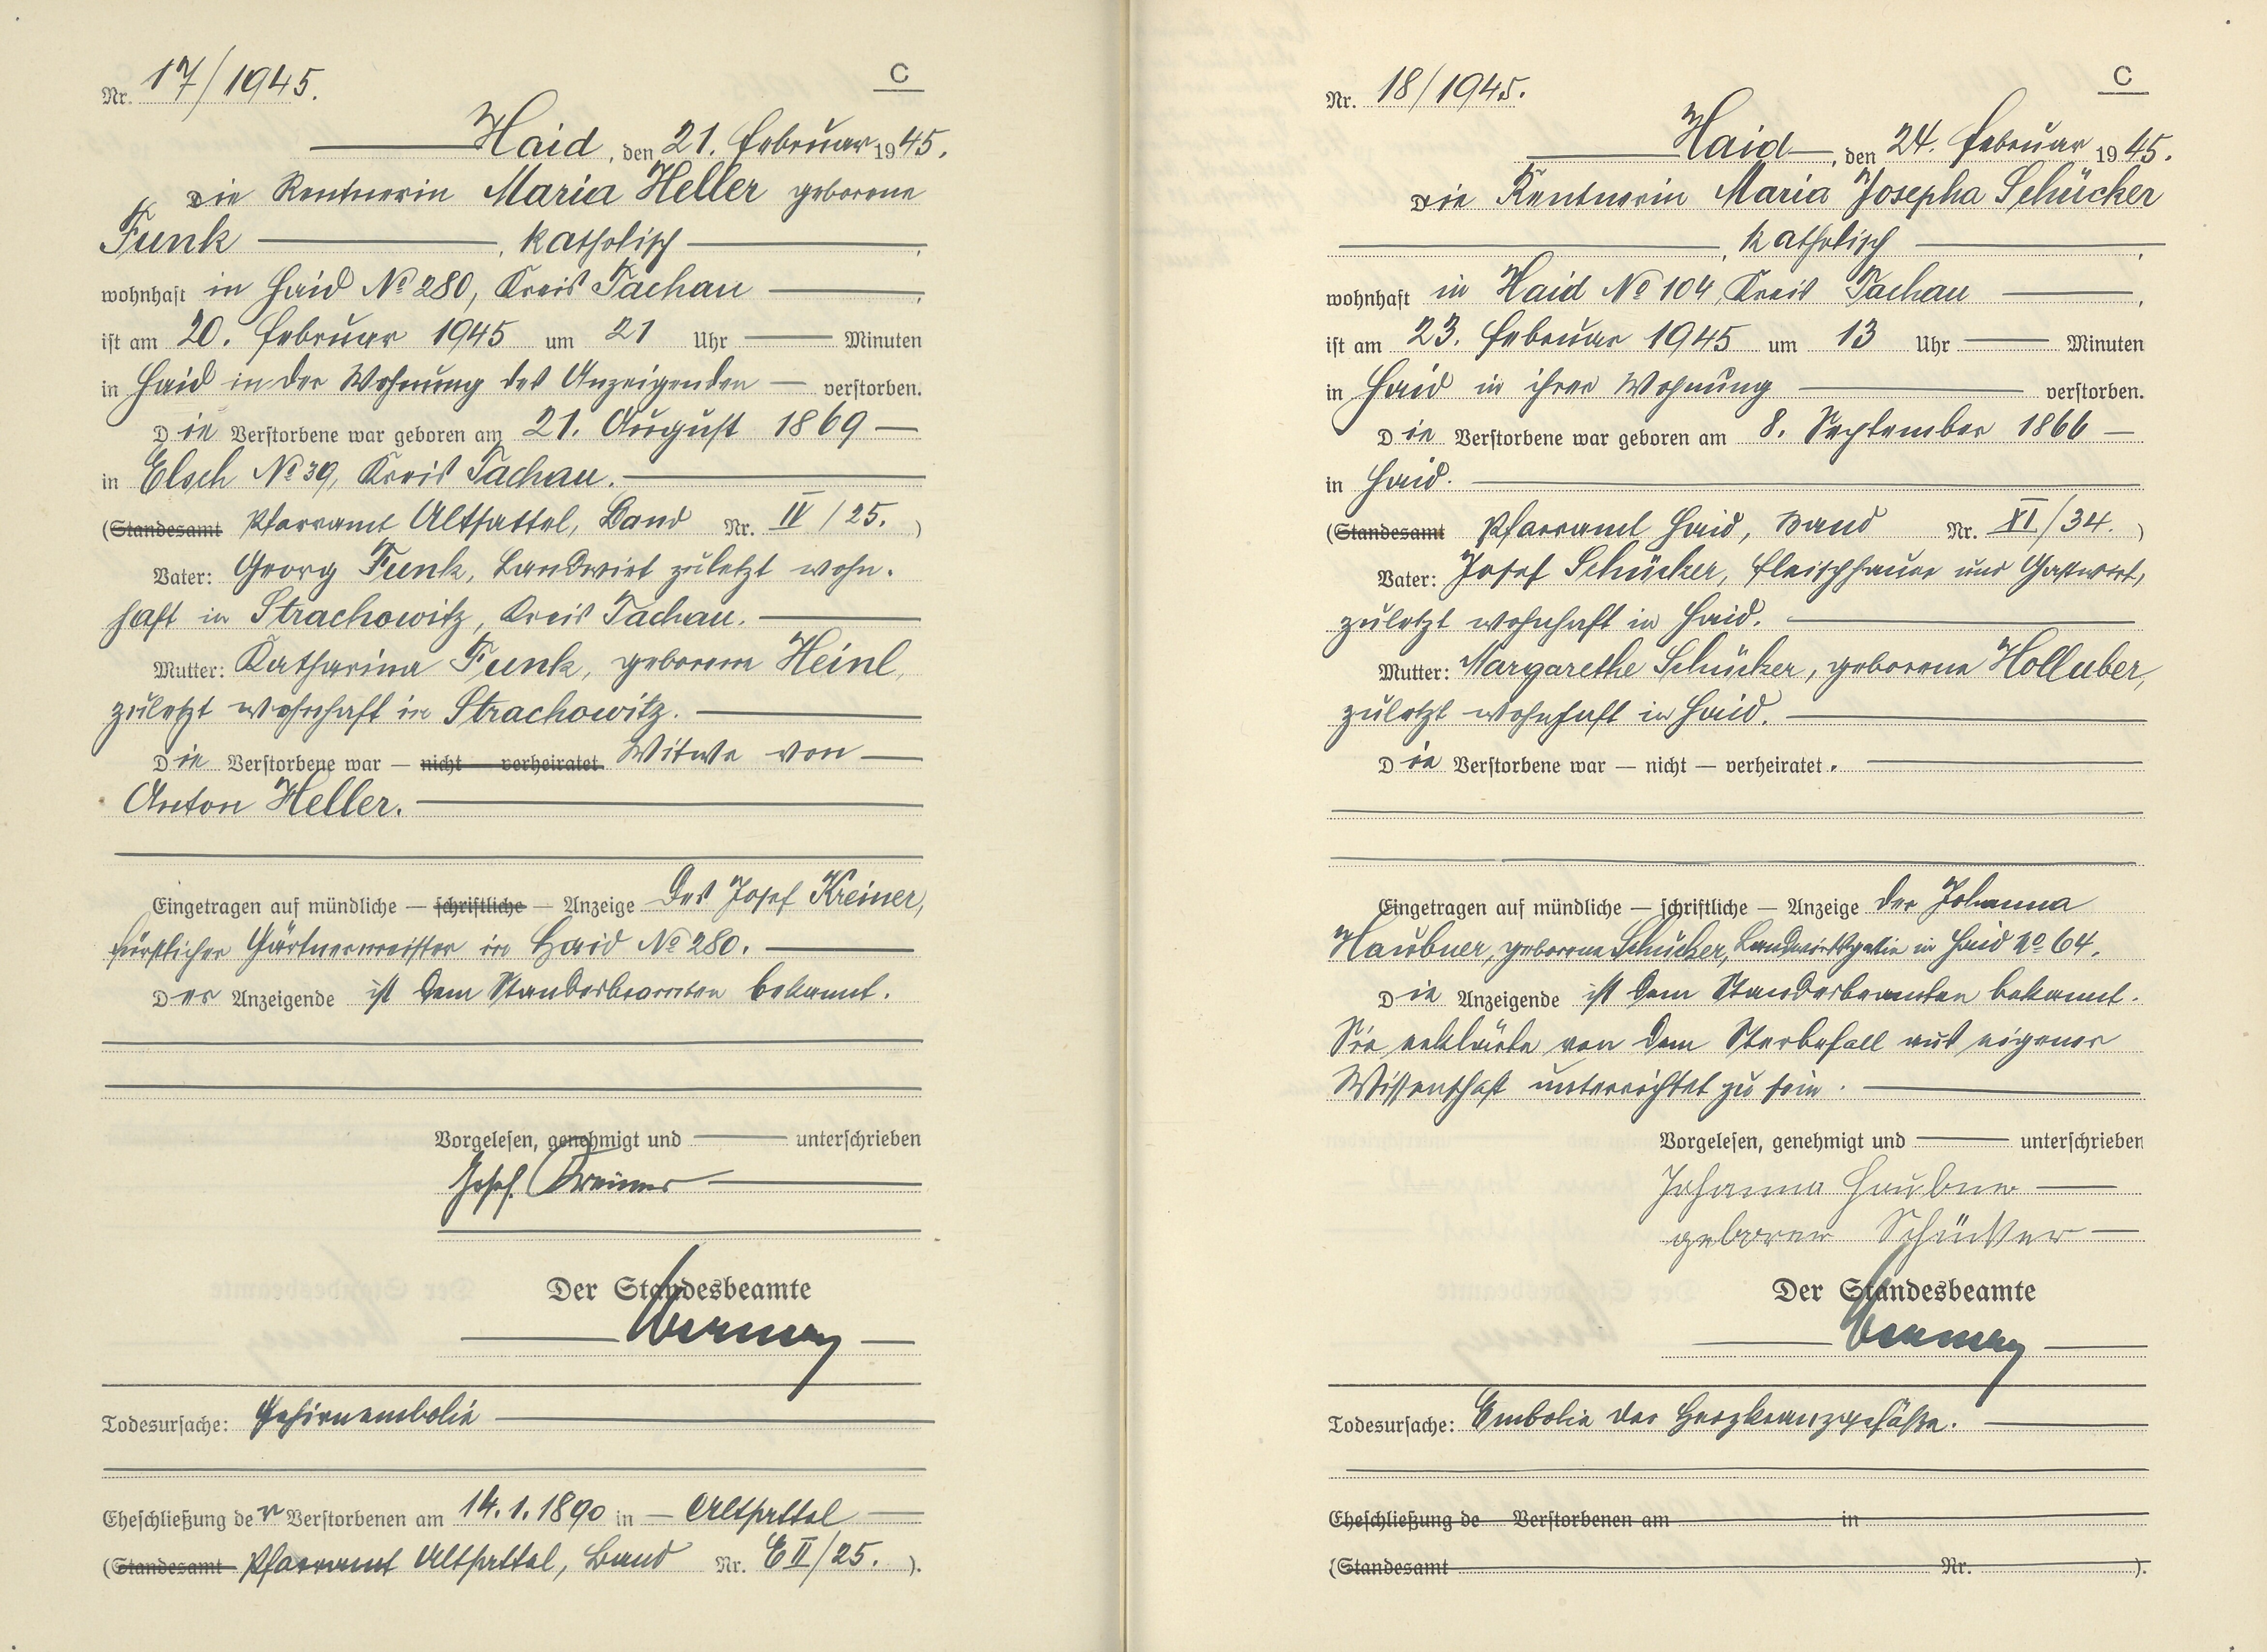 Nr. 17/1945.
C
Haid, den 21. Februar 1945.
Die Rentnerin Maria Heller geborene
Funk, katholisch,
wohnhaft in Haid No 280, Kreis Tachau,
ist am 20. Februar 1945 um 21 Uhr Minuten
in Haid in der Wohnung des Anzeigenden verstorben.
Die Verstorbene war geboren am 21. August 1869
in Elsch No 39, Kreis Tachau.
(Standesamt Pfarramt Altsattel, Band Nr. IV/25.)
Vater: Georg Funk, Landwirt zuletzt wohn-
haft in Strachowitz, Kreis Tachau.
Mutter: Katharina Funk, geborene Heinl,
zuletzt wohnhaft in Strachowitz.
Die Verstorbene war — nicht — verheiratet Witwe von
Anton Heller.
Eingetragen auf mündliche — schriftliche — Anzeige des Josef Kreiner,
fürstlicher Gärtnermeister in Haid No 280.
Der Anzeigende ist dem Standesbeamten bekannt.
Vorgelesen, genehmigt und unterschrieben
Josef Kreiner
Der Standesbeamte
Todesursache: Gehirnembolie
Eheschließung der Verstorbenen am 14.1.1890 in Altsattel
(Standesamt Pfarramt Altsattel, Band Nr. E II/25.).
Nr. 18/1945.
C
Haid, den 24. Februar 1945.
Die Rentnerin Maria Josepha Schücker
, katholisch,
wohnhaft in Haid No 104, Kreis Tachau,
ist am 23. Februar 1945 um 13 Uhr Minuten
in Haid in ihrer Wohnung verstorben.
Die Verstorbene war geboren am 8. September 1866
in Haid.
(Standesamt Pfarramt Haid, Band Nr. XI/34.)
Vater: Josef Schücker, Fleischhauer und Gastwirt,
zuletzt wohnhaft in Haid.
Mutter: Margarethe Schücker, geborene Holluber,
zuletzt wohnhaft in Haid.
Die Verstorbene war — nicht — verheiratet.
Eingetragen auf mündliche — schriftliche — Anzeige der Johanna
Haubner, geborene Schücker, Landwirtsgattin in Haid No 64.
Die Anzeigende ist dem Standesbeamten bekannt.
Sie erklärte von dem Sterbefall aus eigener
Wissenschaft unterrichtet zu sein.
Vorgelesen, genehmigt und unterschrieben
Johanna Haubner
geborene Schücker
Der Standesbeamte
Todesursache: Embolie der Herzkranzgefäße.
Eheschließung de Verstorbenen am in
(Standesamt Nr. ).